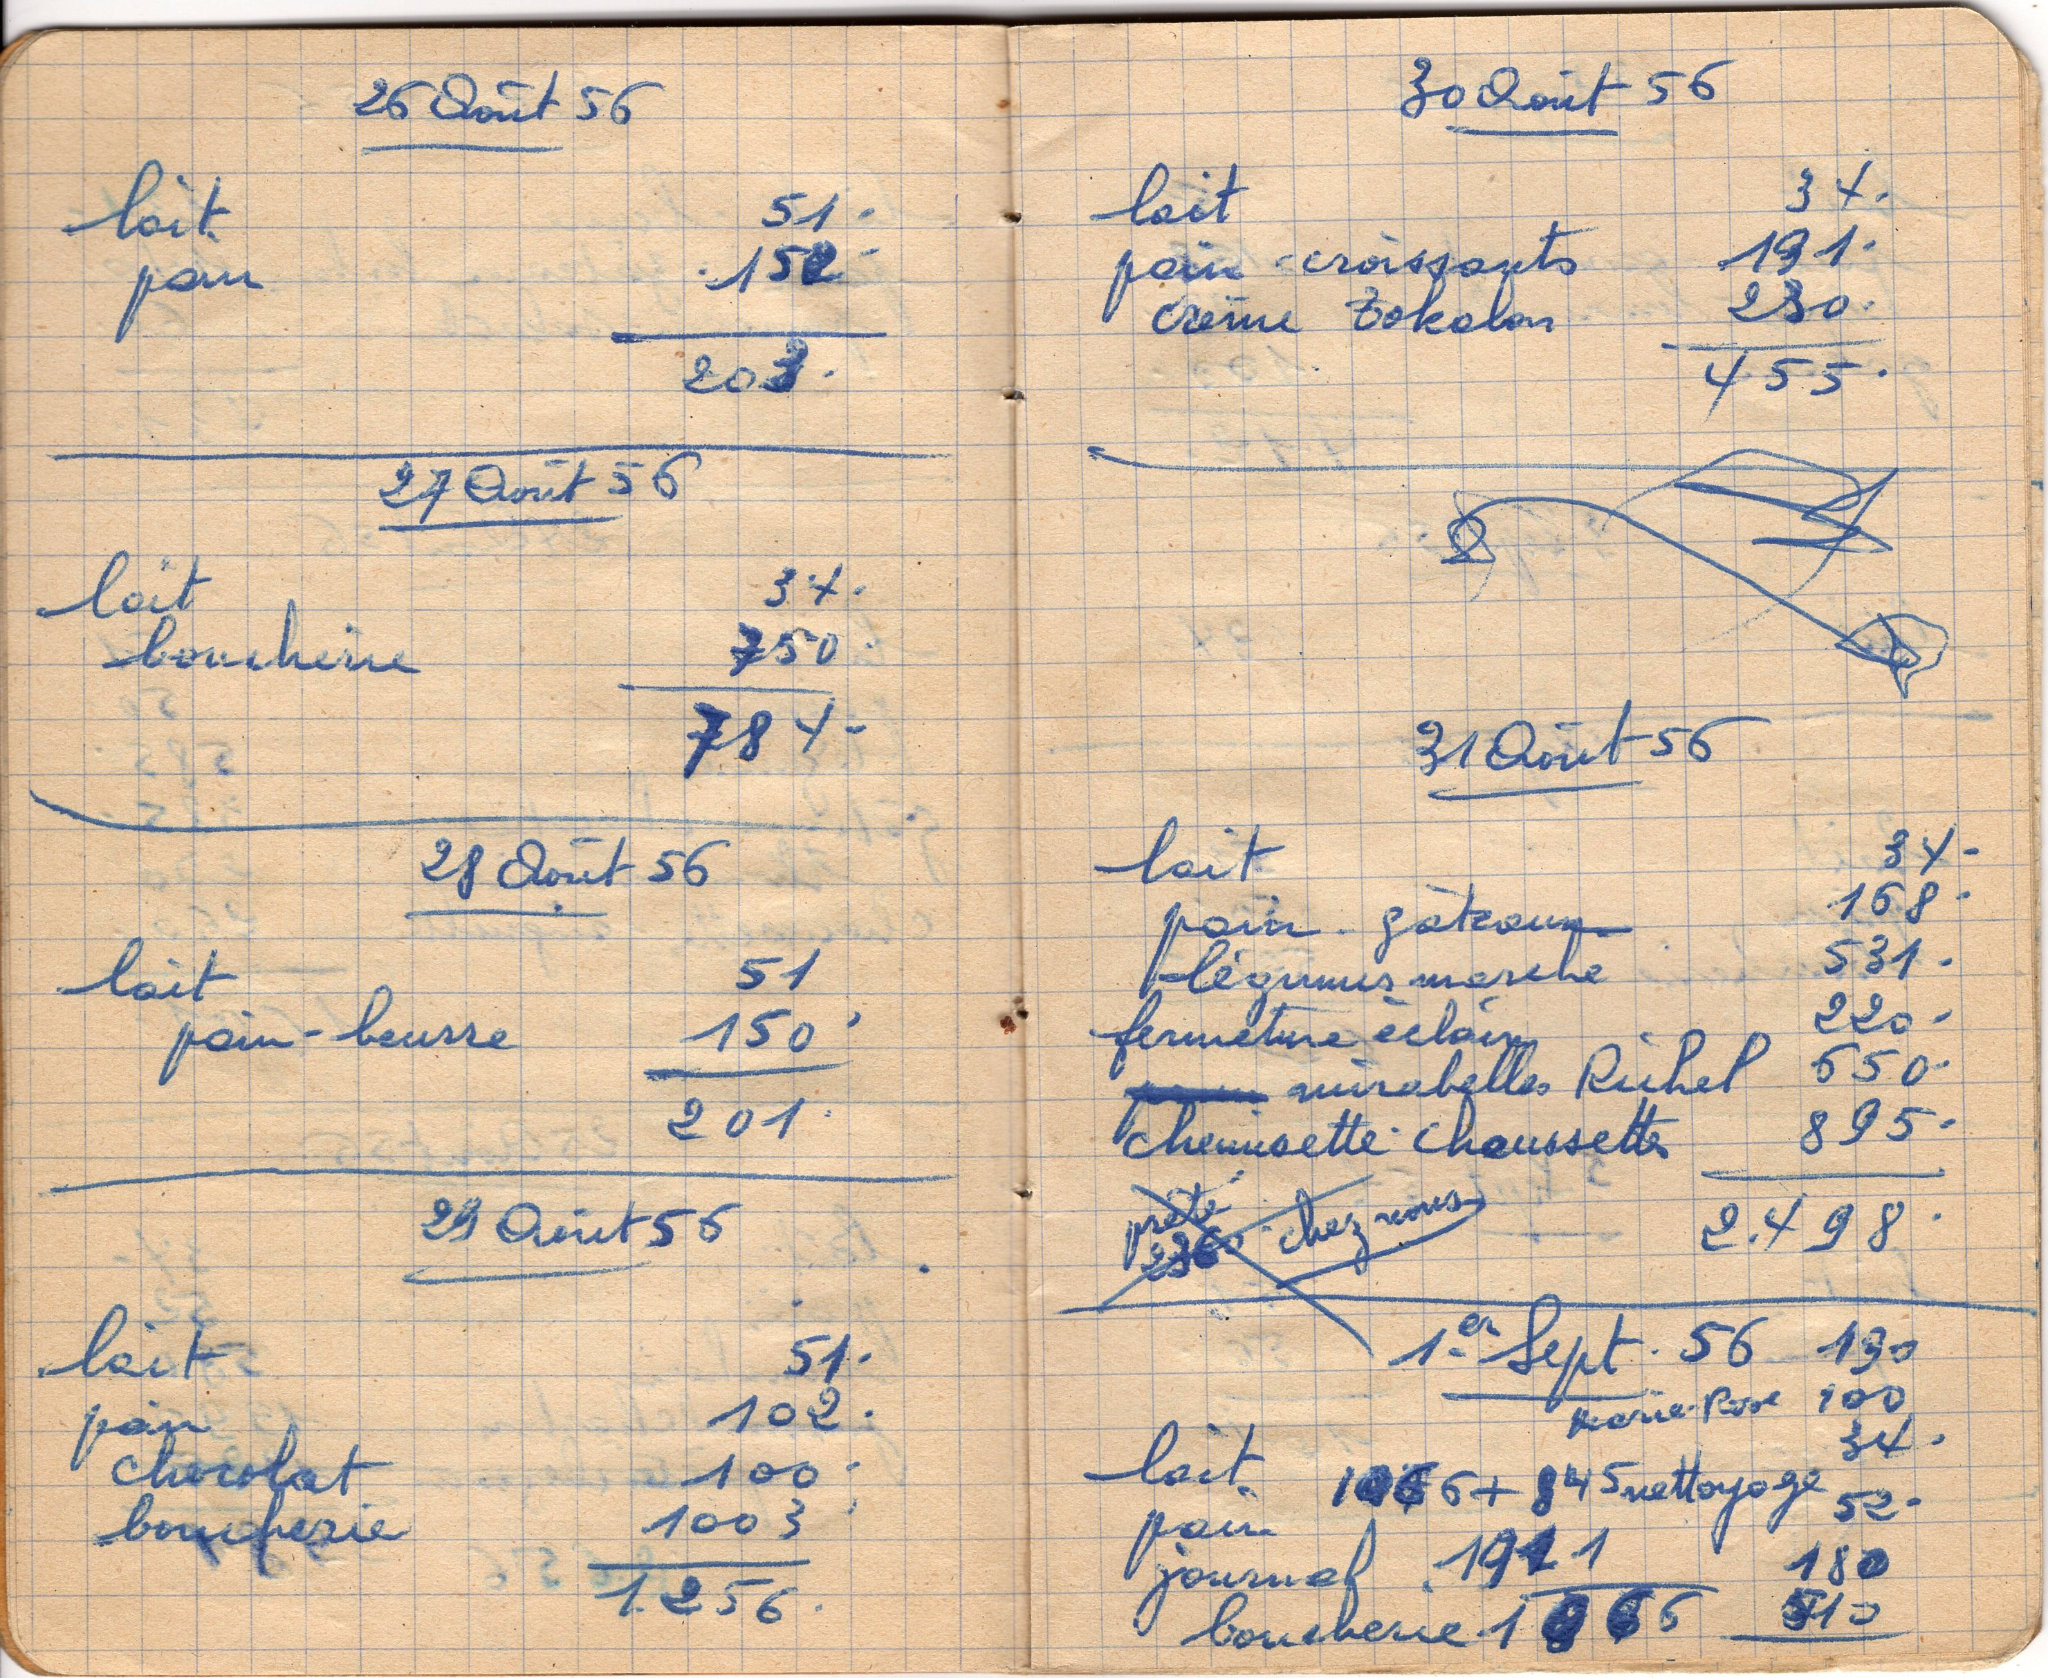 26 Août 56
lait 51.
pain 152
203.
27 Août 56
lait 34.
boucherie 750
784-
28 Août 56
lait 51
pain-beurre 150
201.
29 Août 56
lait 51.
pain 102.
chocolat 100.
boucherie 1003
1.256.
30 Août 56
lait 34.
pain-croissants 191.
crème Tokalon 230.
455.
31 Août 56
lait 34-
pain - gâteaux 168.
légumes marché 531.
fermeture éclair 220.
mirabelles Richel 650.
chemisette-chaussettes 895.
2.498.
prêté chez nous
236
1.er Sept. 56 190
Marie-Rose 100
lait 34.
1066 + 845 nettoyage
pain 52-
journal 1911 180
boucherie 510